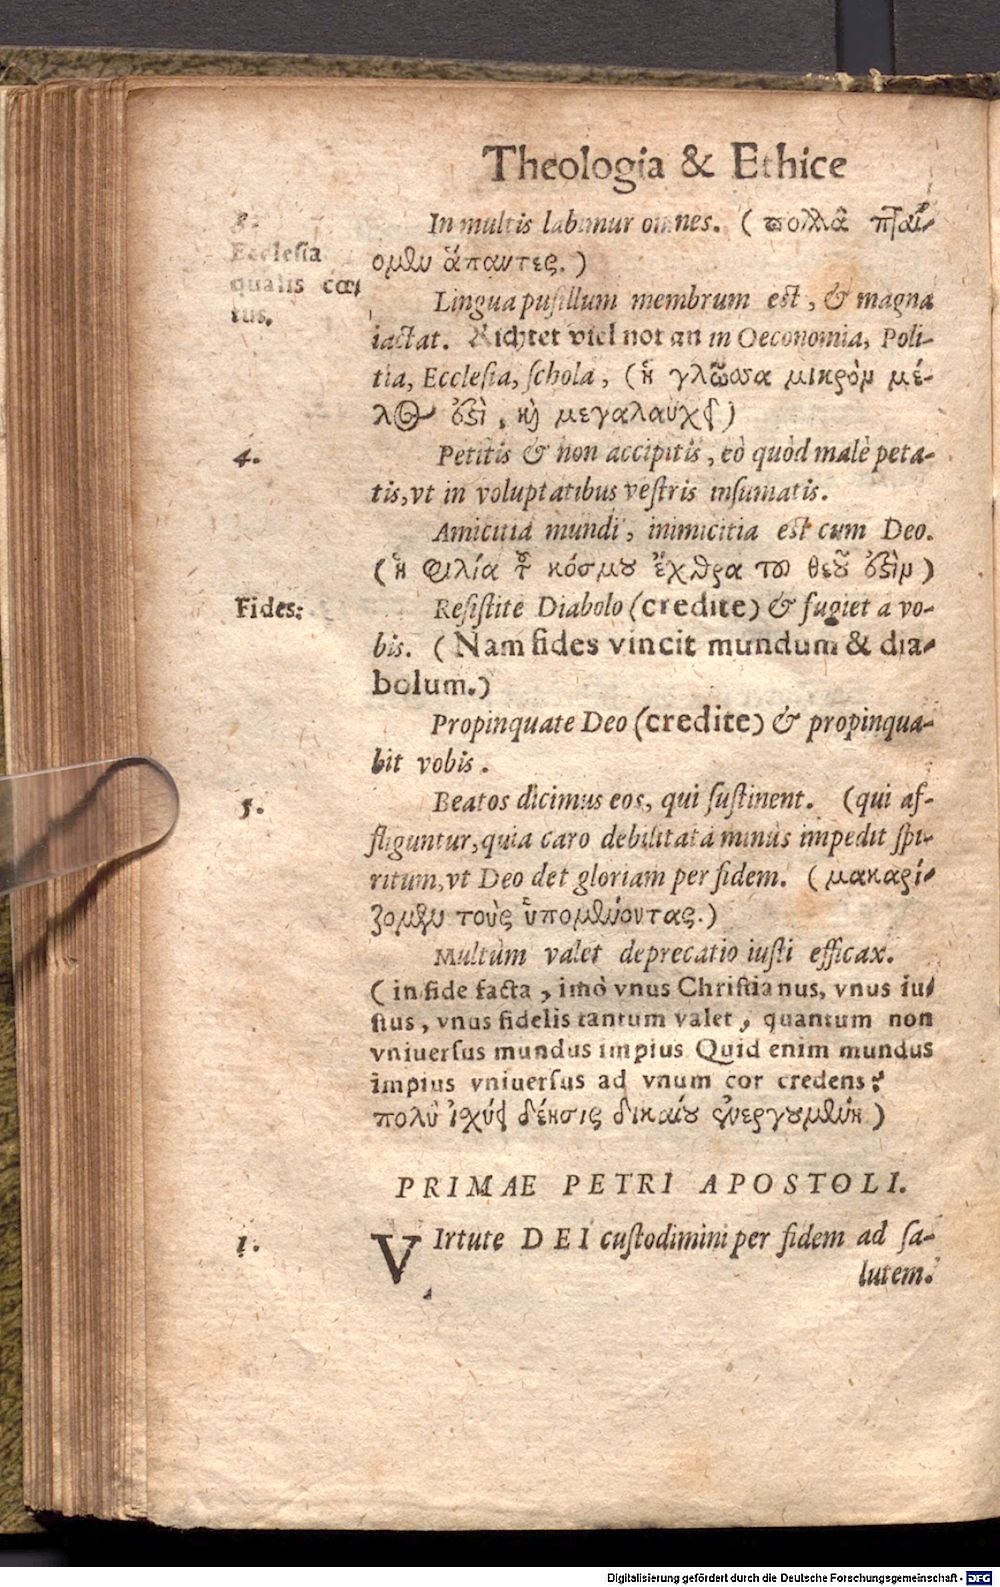 Theologia & Ethice
3.
Ecclesia
qualis cœ⸗
tus.
In multis labimur omnes. (πολλὰ πταί⸗
ομεν ἅπαντες.)
Lingua pusillum membrum est, & magna
iactat. Richtet viel not an in Oeconomia, Poli-
tia, Ecclesia, schola, (ἡ γλῶσσα μικρὸν μέ-
λος ἐστὶ, καὶ μεγαλαυχεῖ)
4.
Petitis & non accipitis, eò quòd malè peta-
tis, vt in voluptatibus vestris insumatis.
Amicitia mundi, inimicitia est cum Deo.
(ἡ φιλία τοῦ κόσμου ἔχθρα τοῦ θεοῦ ἐστὶν)
Fides:
Resistite Diabolo (credite) & fugiet a vo-
bis. (Nam fides vincit mundum & dia-
bolum.)
Propinquate Deo (credite) & propinqua-
bit vobis.
5.
Beatos dicimus eos, qui sustinent. (qui af-
fliguntur, quia caro debilitata minùs impedit spi-
ritum, vt Deo det gloriam per fidem. (μακαρί-
ζομεν τοὺς ὑπομένοντας.)
Multùm valet deprecatio iusti efficax.
(in fide facta, imò vnus Christianus, vnus iu-
stus, vnus fidelis tantum valet, quantum non
vniuersus mundus impius Quid enim mundus
impius vniuersus ad vnum cor credens?
πολὺ ἰσχύει δέησις δικαίου ἐνεργουμένη)
PRIMAE PETRI APOSTOLI.
1.
VIrtute DEI custodimini per fidem ad sa-
lutem.
Digitalisierung gefördert durch die Deutsche Forschungsgemeinschaft - DFG